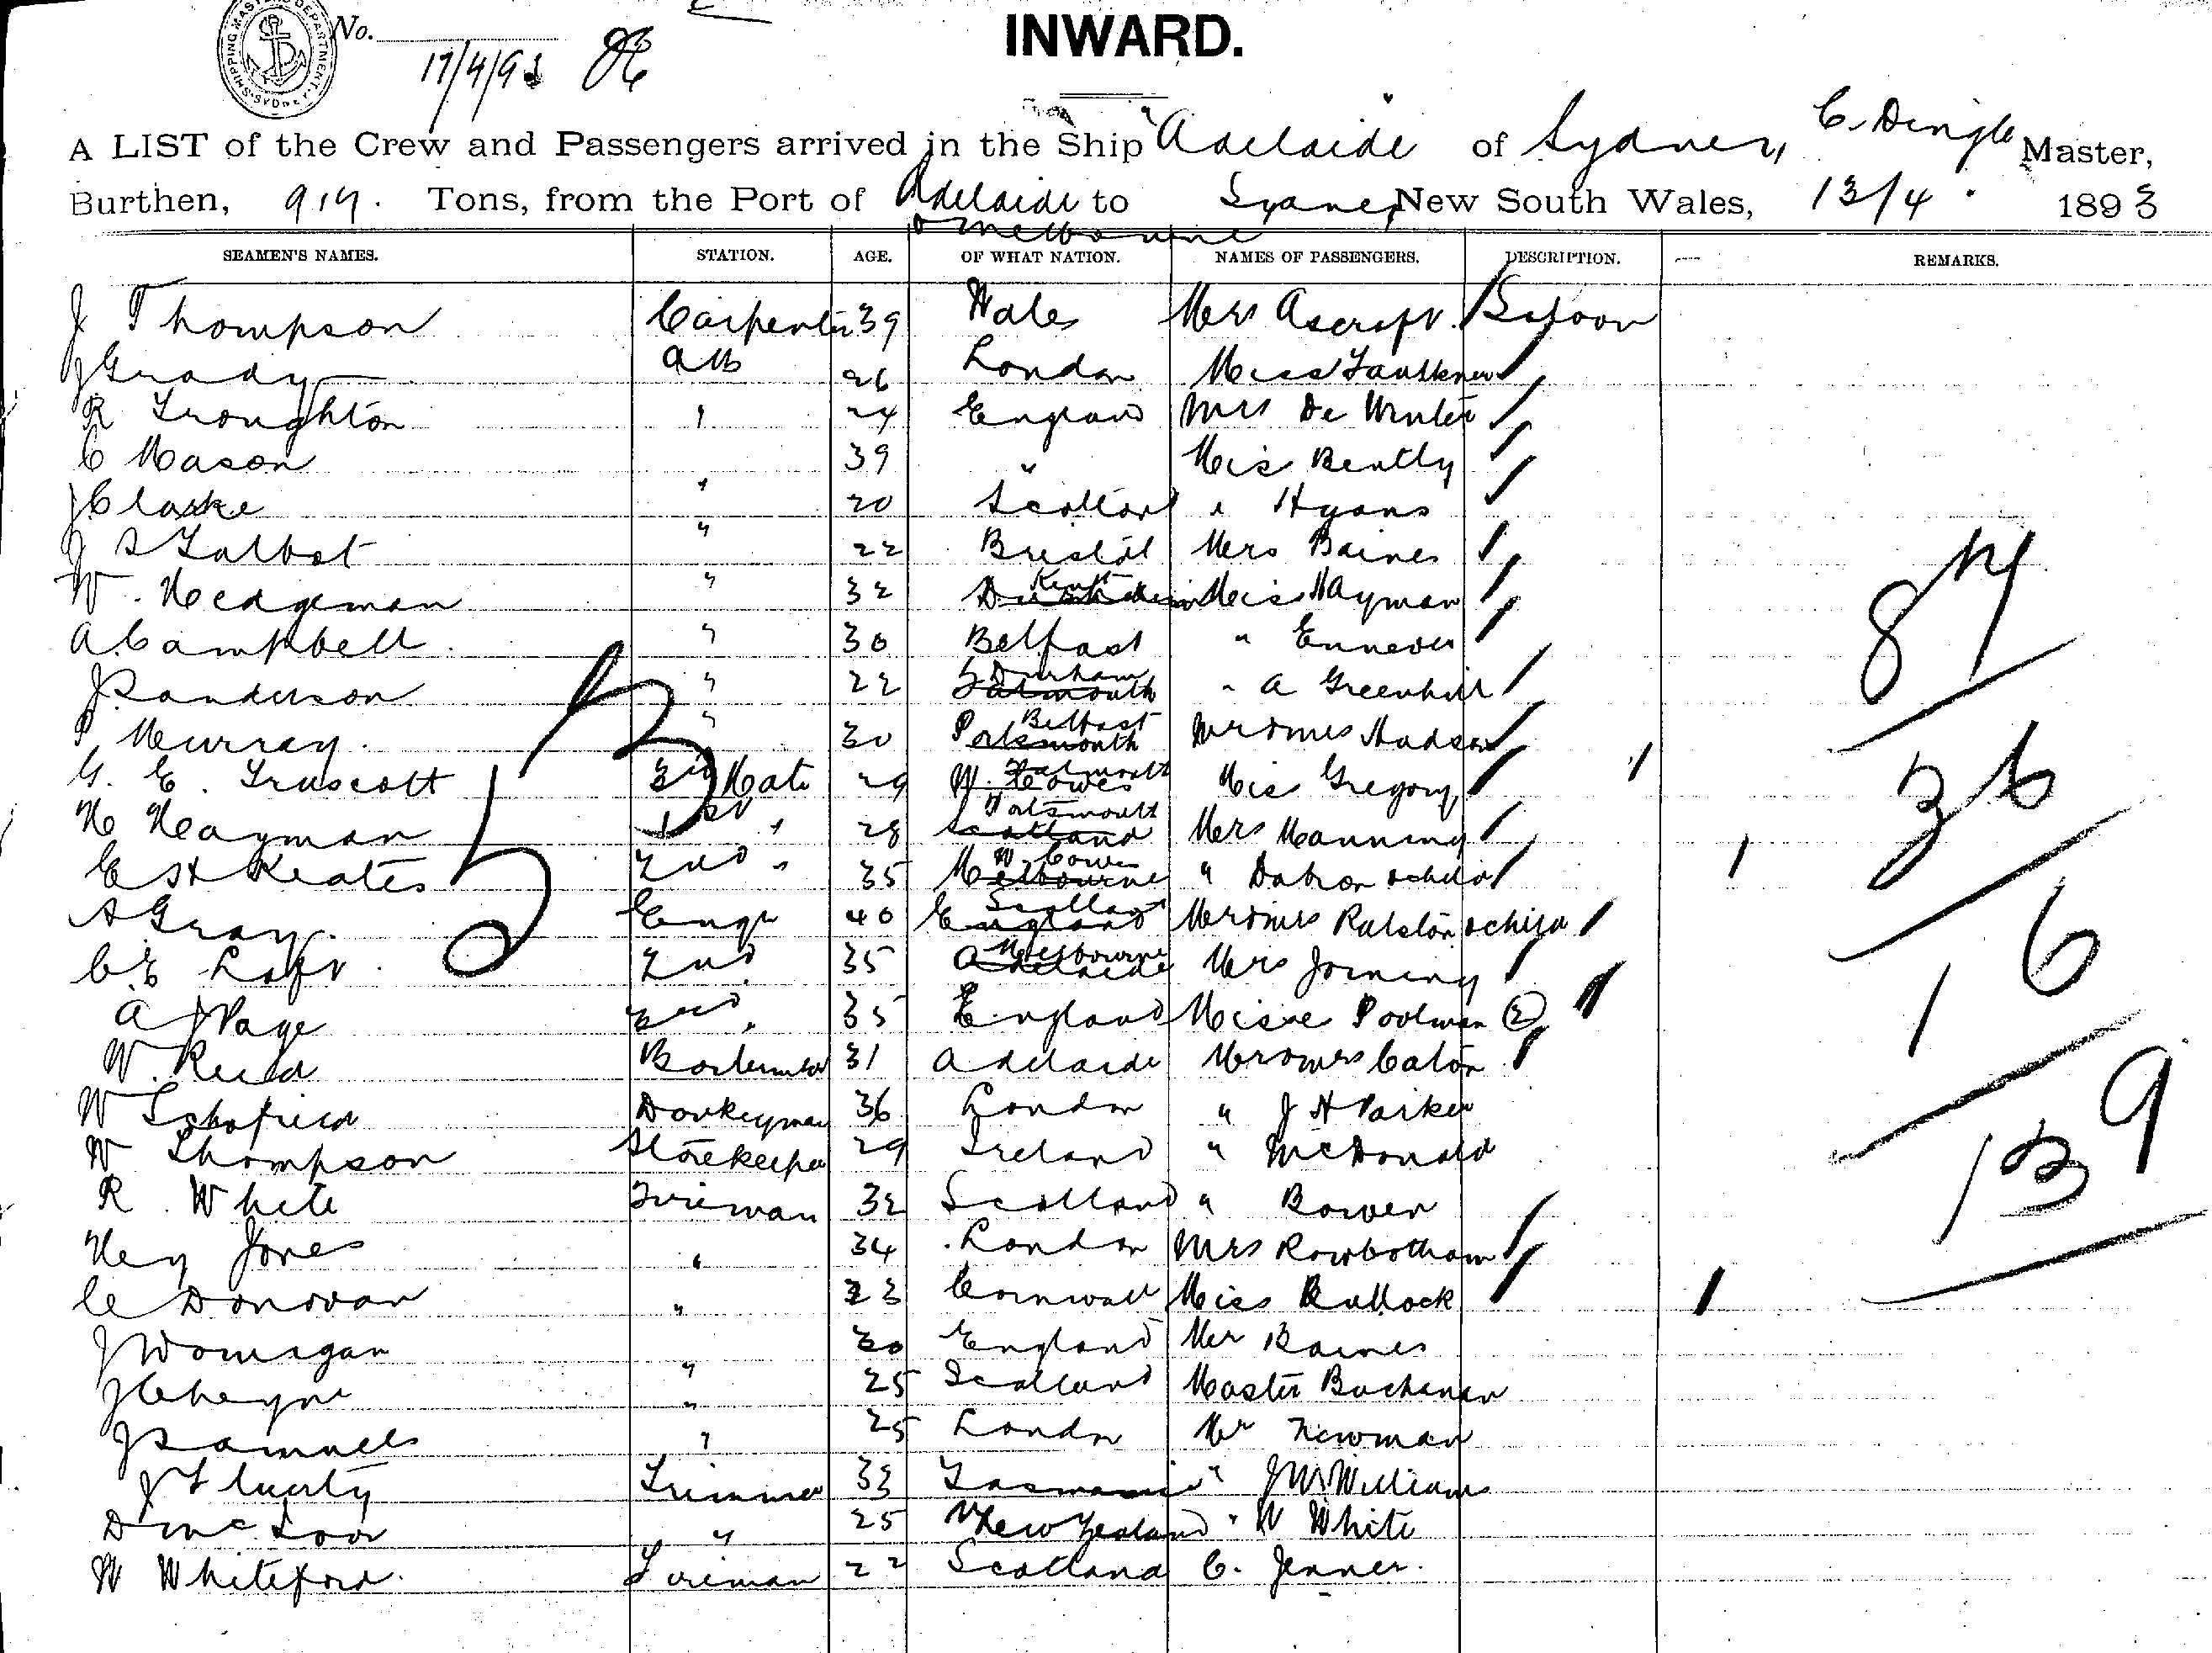 SHIPPING MASTER'S DEPARTMENT SYDNEY
No.
17/4/93
INWARD.
A LIST of the Crew and Passengers arrived in the Ship "Adelaide" of Sydney, C. Dingle Master,
Burthen, 919. Tons, from the Port of Adelaide to Sydney New South Wales, 13/4 1893
& Melbourne
SEAMEN'S NAMES. STATION. AGE. OF WHAT NATION. NAMES OF PASSENGERS. DESCRIPTION. REMARKS.
J Thompson Carpenter 39 Wales Mrs Ascroft Saloon
J Grady AB 26 London Miss Faulkner
R Troughton " 24 England Mrs De Winter
C Mason " 39 " Miss Bently
J Clarke " 20 Scotland " Hyans
J S Talbot " 22 Bristol Mrs Baines
W. Hedgeman " 32 Kent Miss Hayman
A Campbell " 30 Belfast "
J Sanderson " 22 Durham Falmouth " A Greenhill
P Murray " 30 Belfast Portsmouth Mr & Mrs Hudson
G. E. Truscott Mate 29 Falmouth W. Cowes Miss Gregory
H Hayman 1st " 28 Portsmouth Scotland Mrs Manning
E H Keates 2nd " 35 W. Cowes Melbourne " & child
A Gray Engr 40 Scotland England Mr & Mrs Ralston & child
C E 2nd 35 Melbourne Adelaide Mrs Joining
A J Page 35 England Misses Poolman (2)
W. Reid 31 Adelaide Mr & Mrs Caton
W Schofield Donkeyman 36 London " J H Parker
W Thompson Storekeeper 29 Ireland " McDonald
R White Fireman 32 Scotland " Bowen
Hey Jones " 34 London Mrs Rowbotham
C Donovan " 23 Cornwall Miss Bullock
J Wornagan " 30 England Mr Baines
J Cheyne " 25 Scotland Master Buchanan
J Samuels " 25 London Mr Newman
J Trimmer 33 Tasmania " J McWilliams
D Mc " 25 New Zealand " W White
W Whiteford Fireman 22 Scotland C. Jenner
87
36
16
139
53